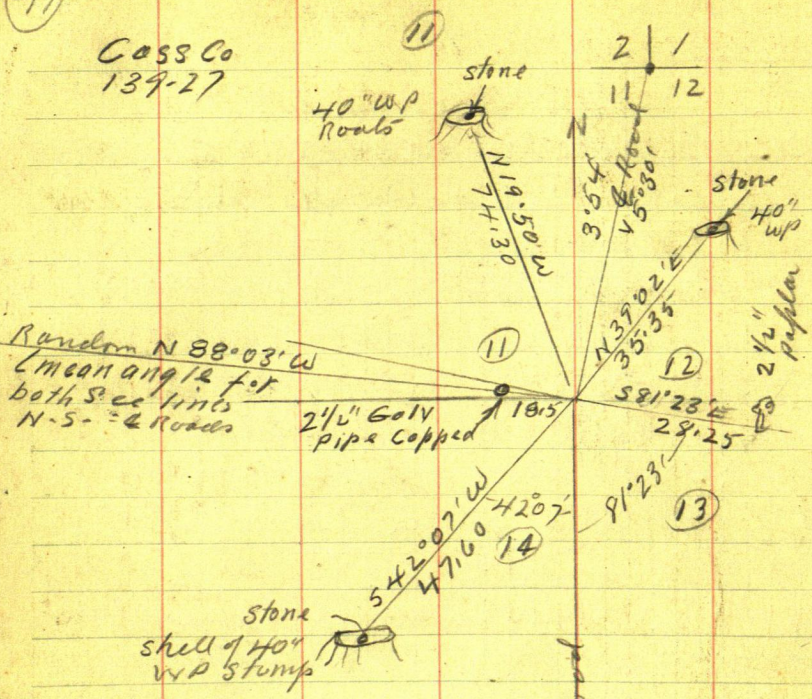 11
Cass Co
139-27
11
stone
40" WP
Roots
N 19°50' W
74.30
2 1
11 12
N
3°54'
℄ Road
5°30'
stone
40"
WP
N 39°02' E
35.35
2 1/2"
Poplar
Random N 88°03' W
(mean angle for
both Sec lines
N-S- ℄ Roads
11
2 1/2" Galv
Pipe Capped
18.5
12
S 81°23' E
28.25
81°23'
13
S 42°07' W
47.60
42°07'
14
stone
shell of 40"
WP Stump